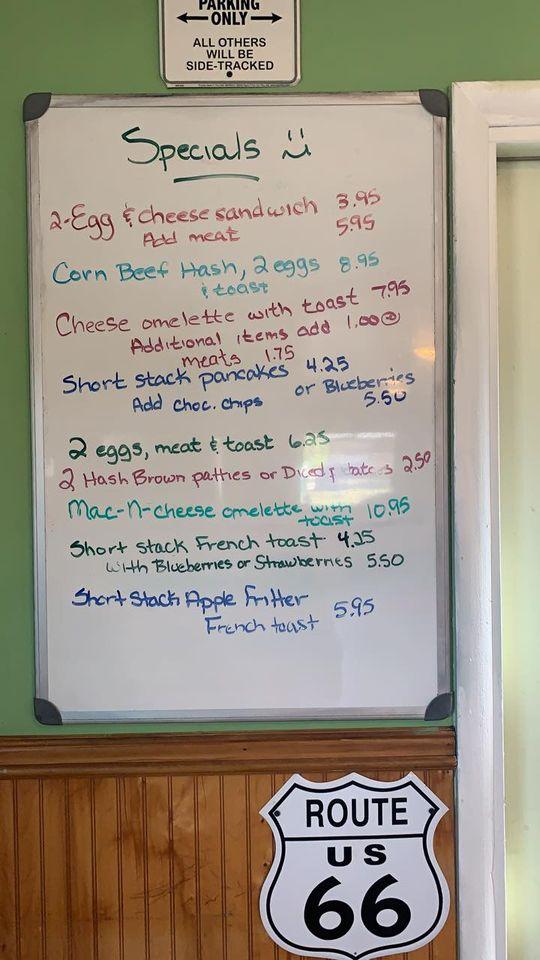 PARKING
ONLY
ALL OTHERS
WILL BE
SIDE-TRACKED
Specials
2-Egg & cheese sandwich 3.95
Add meat 5.95
Corn Beef Hash, 2 eggs 8.95
& toast
Cheese omelette with toast 7.95
Additional items add 1.00@
meats 1.75
Short stack pancakes 4.25
Add choc. chips or Blueberries
5.50
2 eggs, meat & toast 6.25
2 Hash Brown patties or Diced 2.50
Mac-N-cheese omelette with 10.95
toast
Short stack French toast
with Blueberries or Strawberries 5.50
Short Stack Apple Fritter
French toast 5.95
ROUTE
US
66